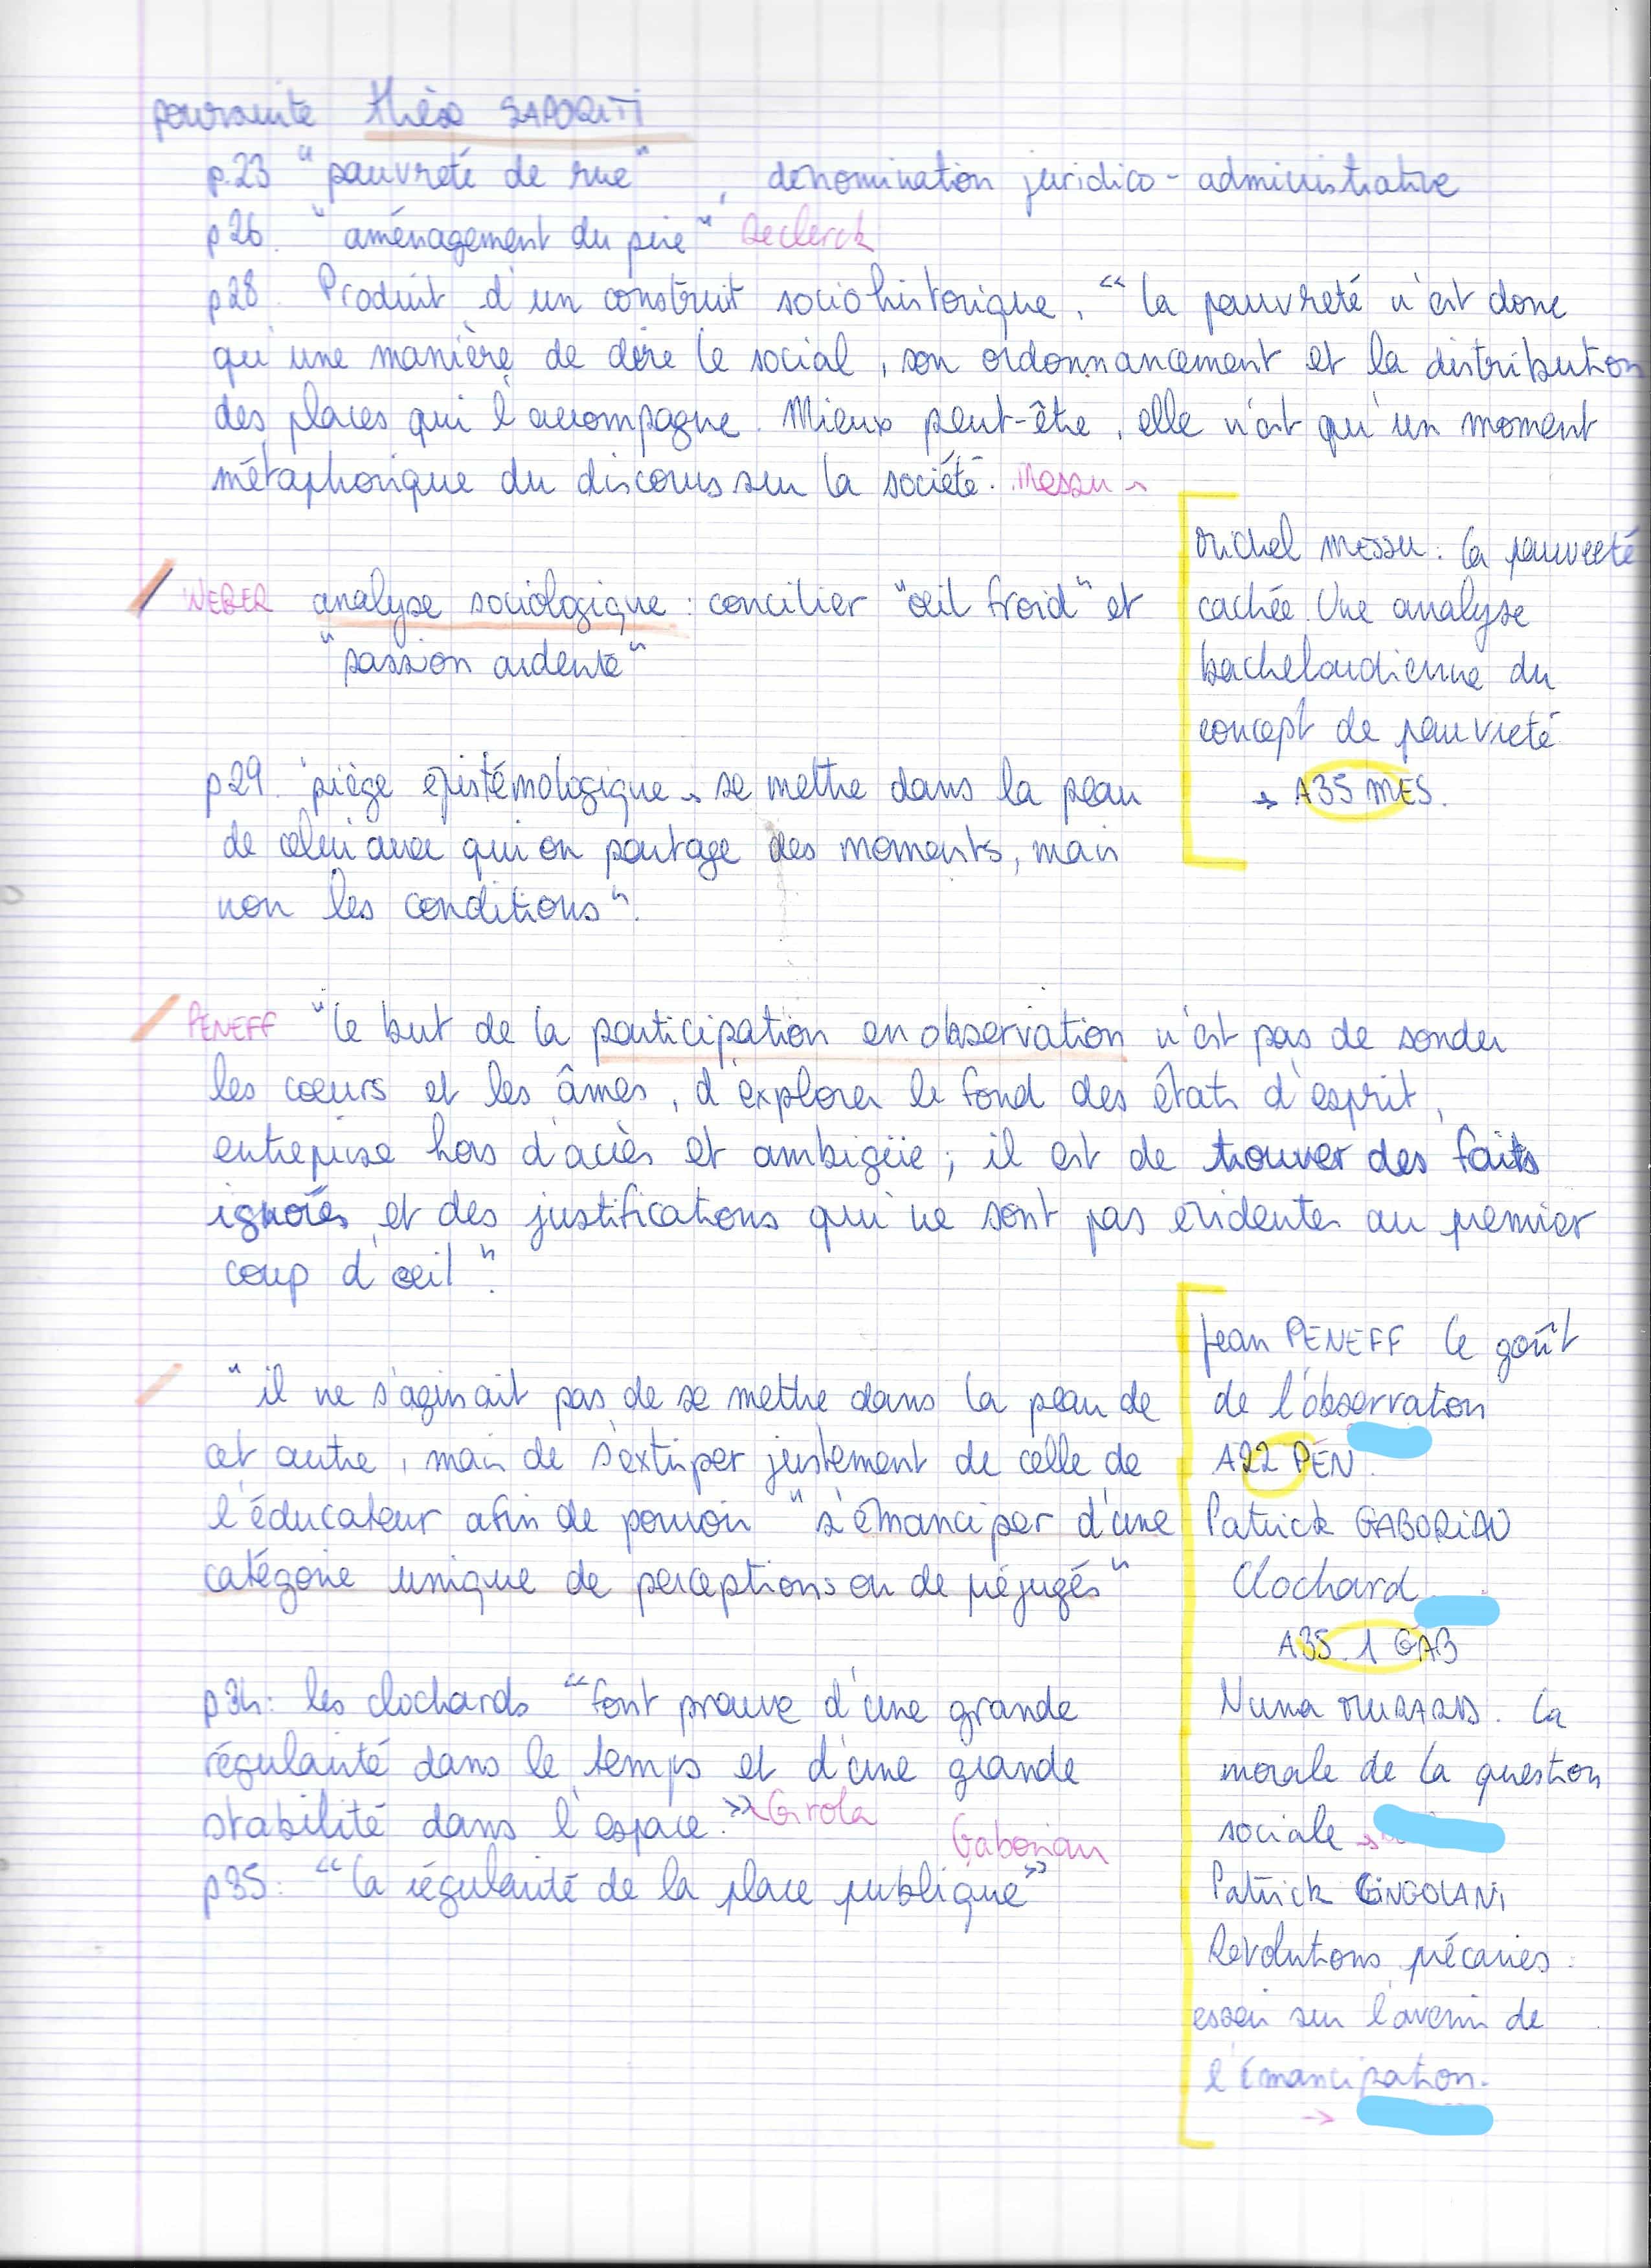 poursuite thèse SAPORITI
p.23 "pauvreté de rue", dénomination juridico-administrative
p26. "aménagement du pire" Declerck
p28. Produit d'un construit sociohistorique. "la pauvreté n'est donc
qu'une manière de dire le social, son ordonnancement et la distribution
des places qui l'accompagne. Mieux peut-être, elle n'est qu'un moment
métaphorique du discours sur la société. Messu
WEBER analyse sociologique : concilier "œil froid" et
"passion ardente"
p29. piège épistémologique → se mettre dans la peau
de celui avec qui on partage des moments, mais
non les conditions".
Michel MESSU : la pauvreté
cachée. Une analyse
bachelardienne du
concept de pauvreté
→ A35 MES.
PENEFF "le but de la participation en observation n'est pas de sonder
les cœurs et les âmes, d'explorer le fond des états d'esprit,
entreprise hors d'accès et ambigüe ; il est de trouver des faits
ignorés et des justifications qui ne sont pas évidentes au premier
coup d'œil".
"il ne s'agissait pas de se mettre dans la peau de
cet autre, mais de s'extirper justement de celle de
l'éducateur afin de pouvoir "s'émanciper d'une
catégorie unique de perceptions ou de préjugés"
p34: les clochards "font preuve d'une grande
régularité dans le temps et d'une grande
stabilité dans l'espace." Girola
Gaboriau
p35: "la régularité de la place publique"
Jean PENEFF le goût
de l'observation
A22 PEN.
Patrick GABORIAU
Clochard
A35.1 GAB
Numa MURARD. la
morale de la question
sociale →
Patrick CINGOLANI
Révolutions précaires :
essai sur l'avenir de
l'émancipation.
→